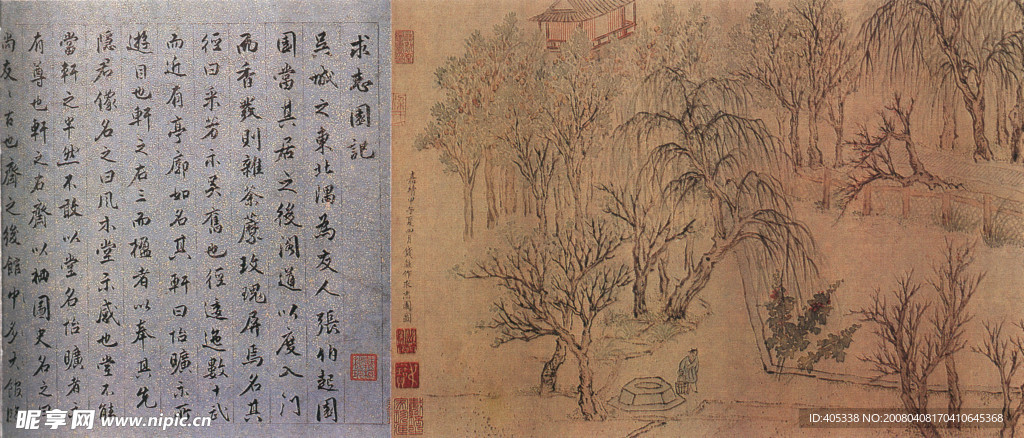 求志園記
吳城之東北隅為友人張伯起園
園當其居之後閣道以度入門
而香發則雜荼蘼玫瑰屏焉名其
徑曰采芳示美舊也徑逶迤數十武
而近有亭廓如名其軒曰怡曠示所
遊目也軒之左三而楹者以奉其先
隱君像名之曰風木堂示感也堂不能
當軒之半然不敢以堂名怡曠者示
有尊也軒之右齋以栖圖史名之曰
尚友友古也齋之後館中多大假
嘉靖甲子夏四月錢穀作求志園圖
昵享网 www.nipic.cn
ID:405338 NO:20080408170410645368